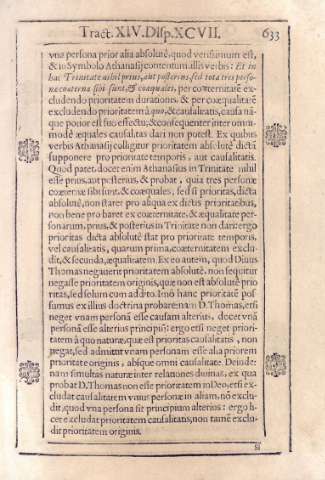 Tract. XIV. Disp. XCVII. 633
vna persona prior alia absolutè, quod verissimum est,
& in Symbolo Athanasij contentum illis verbis: Et in
hac Trinitate nihil prius, aut posterius, sed tota tres perso-
næ coæternæ sibi sunt, & coæquales, per coæternitatẽ ex-
cludendo prioritatem durationis, & per coæqualitatẽ
excludendo prioritatem à quo, & causalitatis, causa nã-
que potior est suo effectu, & consequenter inter omni-
modè æquales causalitas dari non potest. Ex quibus
verbis Athanasij colligitur prioritatem absolutè dictã
supponere pro prioritate temporis, aut causalitatis.
Quod patet, docet enim Athanasius in Trinitate nihil
esse prius, aut posterius, & probat, quia tres personæ
coæternæ sibi sunt, & coæquales, sed si prioritas, dicta
absolutè, non staret pro aliqua ex dictis prioritatibus,
non bene probaret ex coæternitate, & æqualitate per-
sonarum, prius, & posterius in Trinitate non dari: ergo
prioritas dicta absolutè stat pro prioritate temporis,
vel causalitatis, quarum prima, coæternitatem exclu-
dit, & secunda, æqualitatem. Ex eo autem, quod Diuus
Thomas negauerit prioritatem absolutè, non sequitur
negasse prioritatem originis, quæ non est absolutè prio
ritas, sed solum cum addito. Imò hanc prioritatẽ pos-
sumus ex illius doctrina probare: nam D. Thomas, etsi
neget vnam personã esse causam alterius, docet vnã
personã esse alterius principiũ: ergo etsi neget priori-
tatem à quo naturæ, quæ est prioritas causalitatis, non
negat, sed admittit vnam personam esse alia priorem
prioritate originis, absque omni causalitate. Deinde:
nam simultas naturæ inter relationes diuinas, ex qua
probat D. Thomas non esse prioritatem in Deo, etsi ex-
cludat causalitatem vnius personæ in aliam, nõ exclu-
dit, quod vna persona sit principium alterius: ergo li-
cet excludat prioritatem causalitatis, non tamẽ exclu-
dit prioritatem originis.